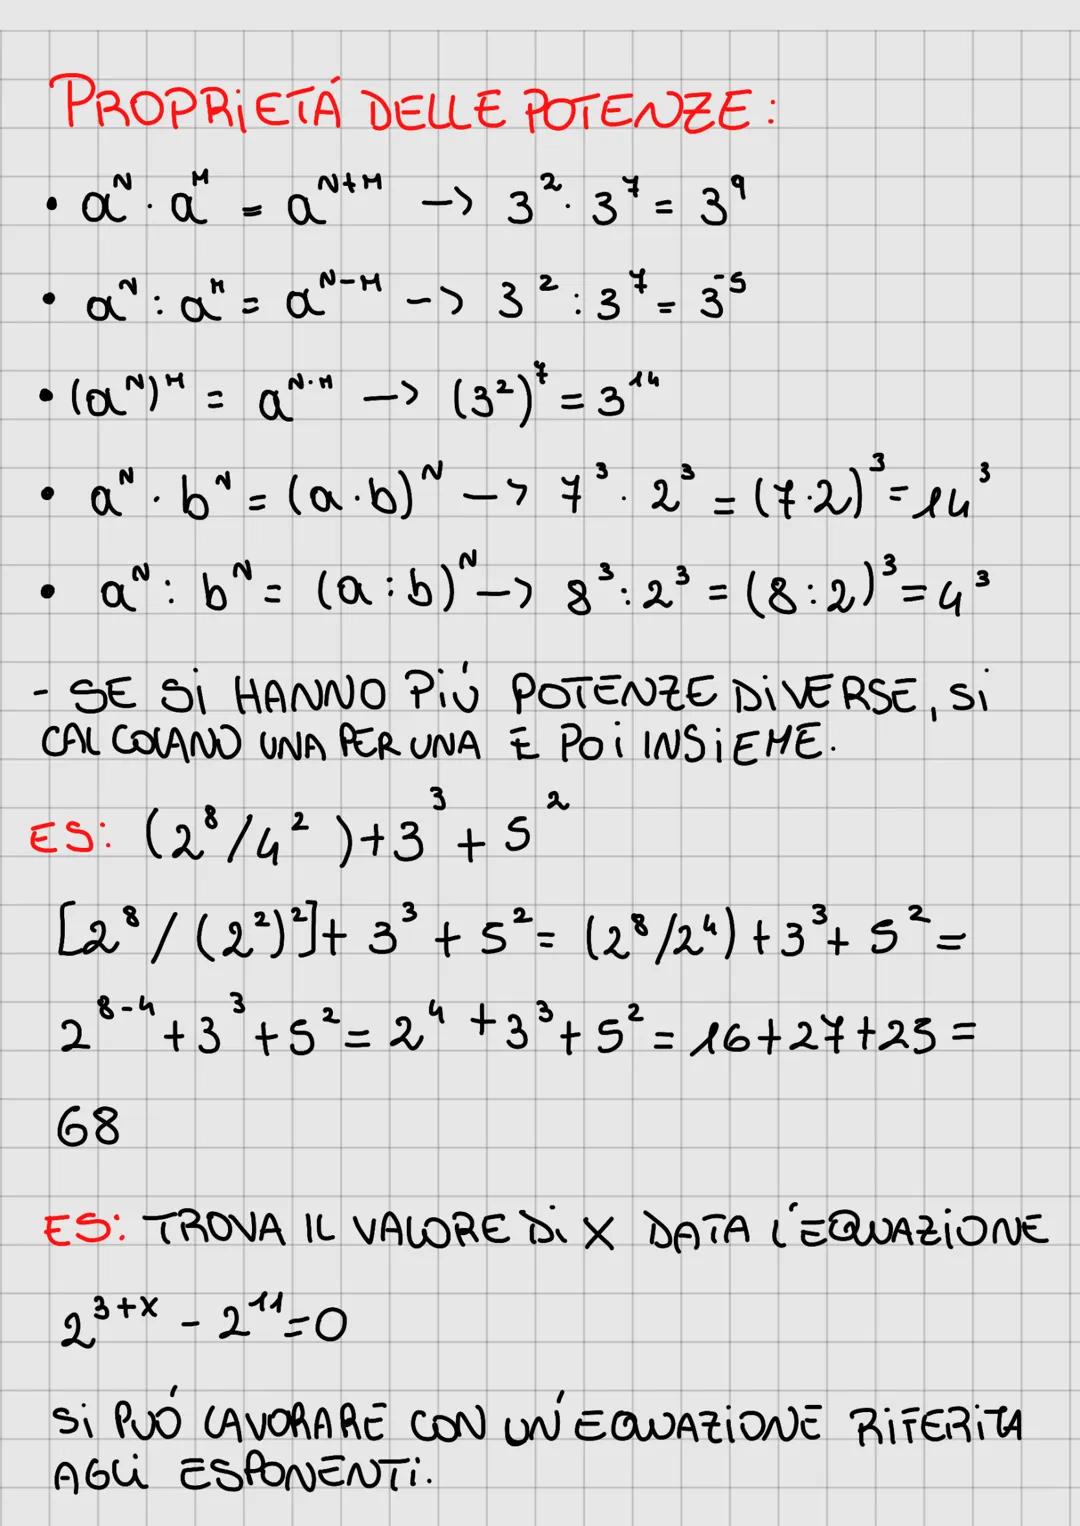 PROPRIETÁ DELLE POTENZE:
• aᴺ · aᴹ = aᴺ⁺ᴹ -> 3² · 3⁷ = 3⁹
• aᴺ : aᴹ = aᴺ⁻ᴹ -> 3² : 3⁷ = 3⁻⁵
• (aᴺ)ᴹ = aᴺ·ᴹ -> (3²)⁷ = 3¹⁴
• aᴺ · bᴺ = (a·b)ᴺ -> 7³ · 2³ = (7·2)³ = 14³
• aᴺ : bᴺ = (a:b)ᴺ -> 8³ : 2³ = (8:2)³ = 4³
- SE Si HANNO PiÚ POTENZE DiVERSE, Si
CALCOLANO UNA PER UNA E POi INSiEME.
ES: (2⁸/4²)+3³+5²
[2⁸/(2²)²]+3³+5²= (2⁸/2⁴)+3³+5²=
2⁸⁻⁴+3³+5²=2⁴+3³+5²=16+27+25=
68
ES: TROVA IL VALORE Di X DATA L'EQUAZiONE
2³⁺ˣ - 2¹¹=0
Si PUÓ LAVORARE CON UN'EQUAZiONE RiFERiTA
AGLi ESPONENTi.